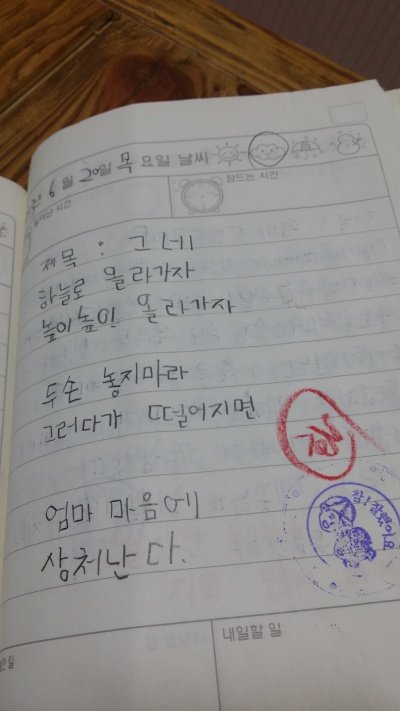 6월 20일 목요일 날씨
잠드는 시간
제목 : 그네
하늘로 올라가자
높이높이 올라가자
두손 놓지마라
그러다가 떨어지면
엄마 마음에
상처난다.
참! 잘했어요
내일할 일